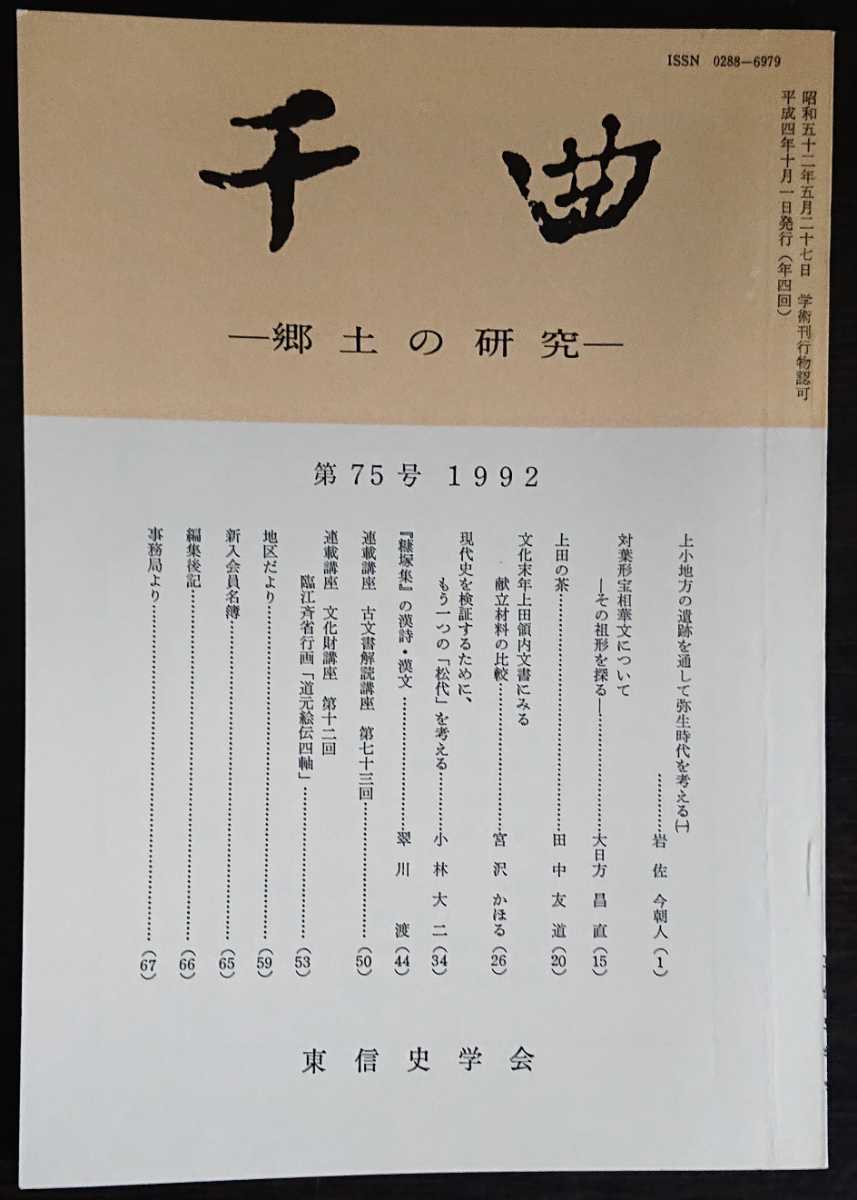 ISSN 0288―6979
昭和五十二年五月二十七日 学術刊行物認可
平成四年十月一日発行(年四回)
千曲
―郷土の研究―
第75号 1992
上小地方の遺跡を通して弥生時代を考える㈠
…………岩佐今朝人(1)
対葉形宝相華文について
―その祖形を探る―…………………大日方昌直(15)
上田の茶………………………………田中友道(20)
文化末年上田領内文書にみる
献立材料の比較………………………宮沢かほる(26)
現代史を検証するために、
もう一つの「松代」を考える…………小林大二(34)
『糠塚集』の漢詩・漢文…………………翠川渡(44)
連載講座 古文書解読講座 第七十三回………………(50)
連載講座 文化財講座 第十二回
臨江斉省行画「道元絵伝四軸」………………(53)
地区だより………………………………………………(59)
新入会員名簿……………………………………………(65)
編集後記…………………………………………………(66)
事務局より………………………………………………(67)
東信史学会